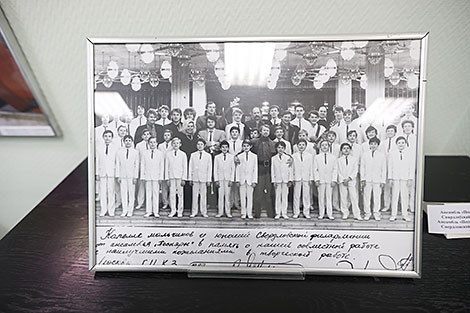 Капелле мальчиков и юношей Свердловской филармонии
от ансамбля "Песняры" в память о нашей совместной работе
с наилучшими пожеланиями в творческой работе.
Москва ГЦКЗ
Ансамбль
Свердловской
Ансамбль
Свердловской